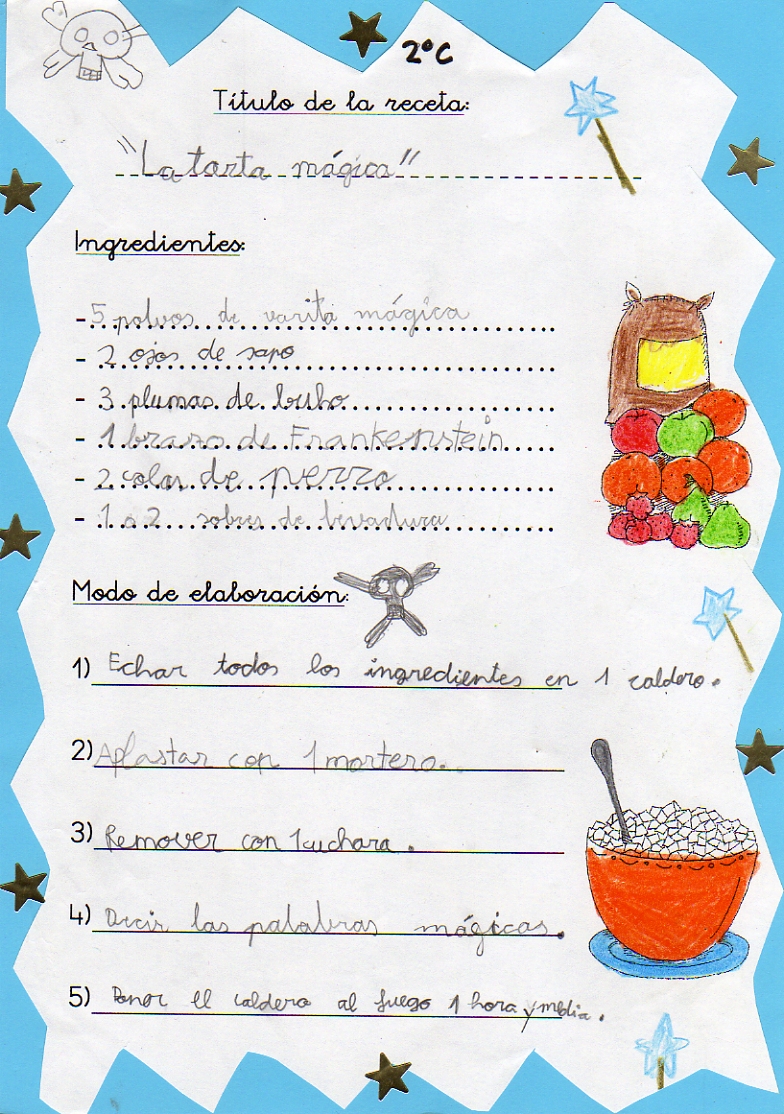 2ºC
Título de la receta:
"La tarta mágica"
Ingredientes:
- 5 polvos de varita mágica
- 2 ojos de sapo
- 3 plumas de buho
- 1 brazo de Frankenstein
- 2 colas de perro
- 1 o 2 sobres de levadura
Modo de elaboración:
1) Echar todos los ingredientes en 1 caldero.
2) Aplastar con 1 mortero.
3) Remover con 1 cuchara.
4) Decir las palabras mágicas.
5) Poner el caldero al fuego 1 hora y media.